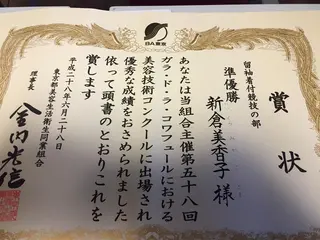 BA東京
賞状
留袖着付競技の部
準優勝
新倉美香子様
あなたは当組合主催第五十八回
ガラ・ド・ラ・コワフュールにおける
美容技術コンクールに出場され
優秀な成績をおさめられました
依って頭書のとおりこれを
賞します
平成二十八年六月二十八日
東京都美容生活衛生同業組合
理事長
金内光信